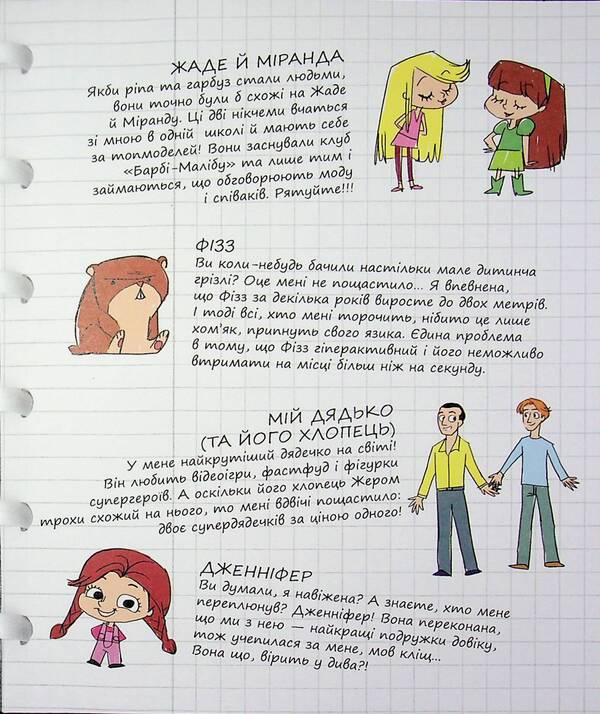 ЖАДЕ Й МІРАНДА
Якби ріпа та гарбуз стали людьми,
вони точно були б схожі на Жаде
й Міранду. Ці дві нікчеми вчаться
зі мною в одній школі й мають себе
за топмоделей! Вони заснували клуб
«Барбі-Малібу» та лише тим і
займаються, що обговорюють моду
і співаків. Рятуйте!!!
ФІЗЗ
Ви коли-небудь бачили настільки мале дитинча
грізлі? Оце мені не пощастило... Я впевнена,
що Фізз за декілька років виросте до двох метрів.
І тоді всі, хто мені торочить, нібито це лише
хом'як, припнуть свого язика. Єдина проблема
в тому, що Фізз гіперактивний і його неможливо
втримати на місці більш ніж на секунду.
МІЙ ДЯДЬКО
(ТА ЙОГО ХЛОПЕЦЬ)
У мене найкрутіший дядечко на світі!
Він любить відеоігри, фастфуд і фігурки
супергероїв. А оскільки його хлопець Жером
трохи схожий на нього, то мені вдвічі пощастило:
двоє супердядечків за ціною одного!
ДЖЕННІФЕР
Ви думали, я навіжена? А знаєте, хто мене
переплюнув? Дженніфер! Вона переконана,
що ми з нею — найкращі подружки довіку,
тож учепилася за мене, мов кліщ...
Вона що, вірить у дива?!